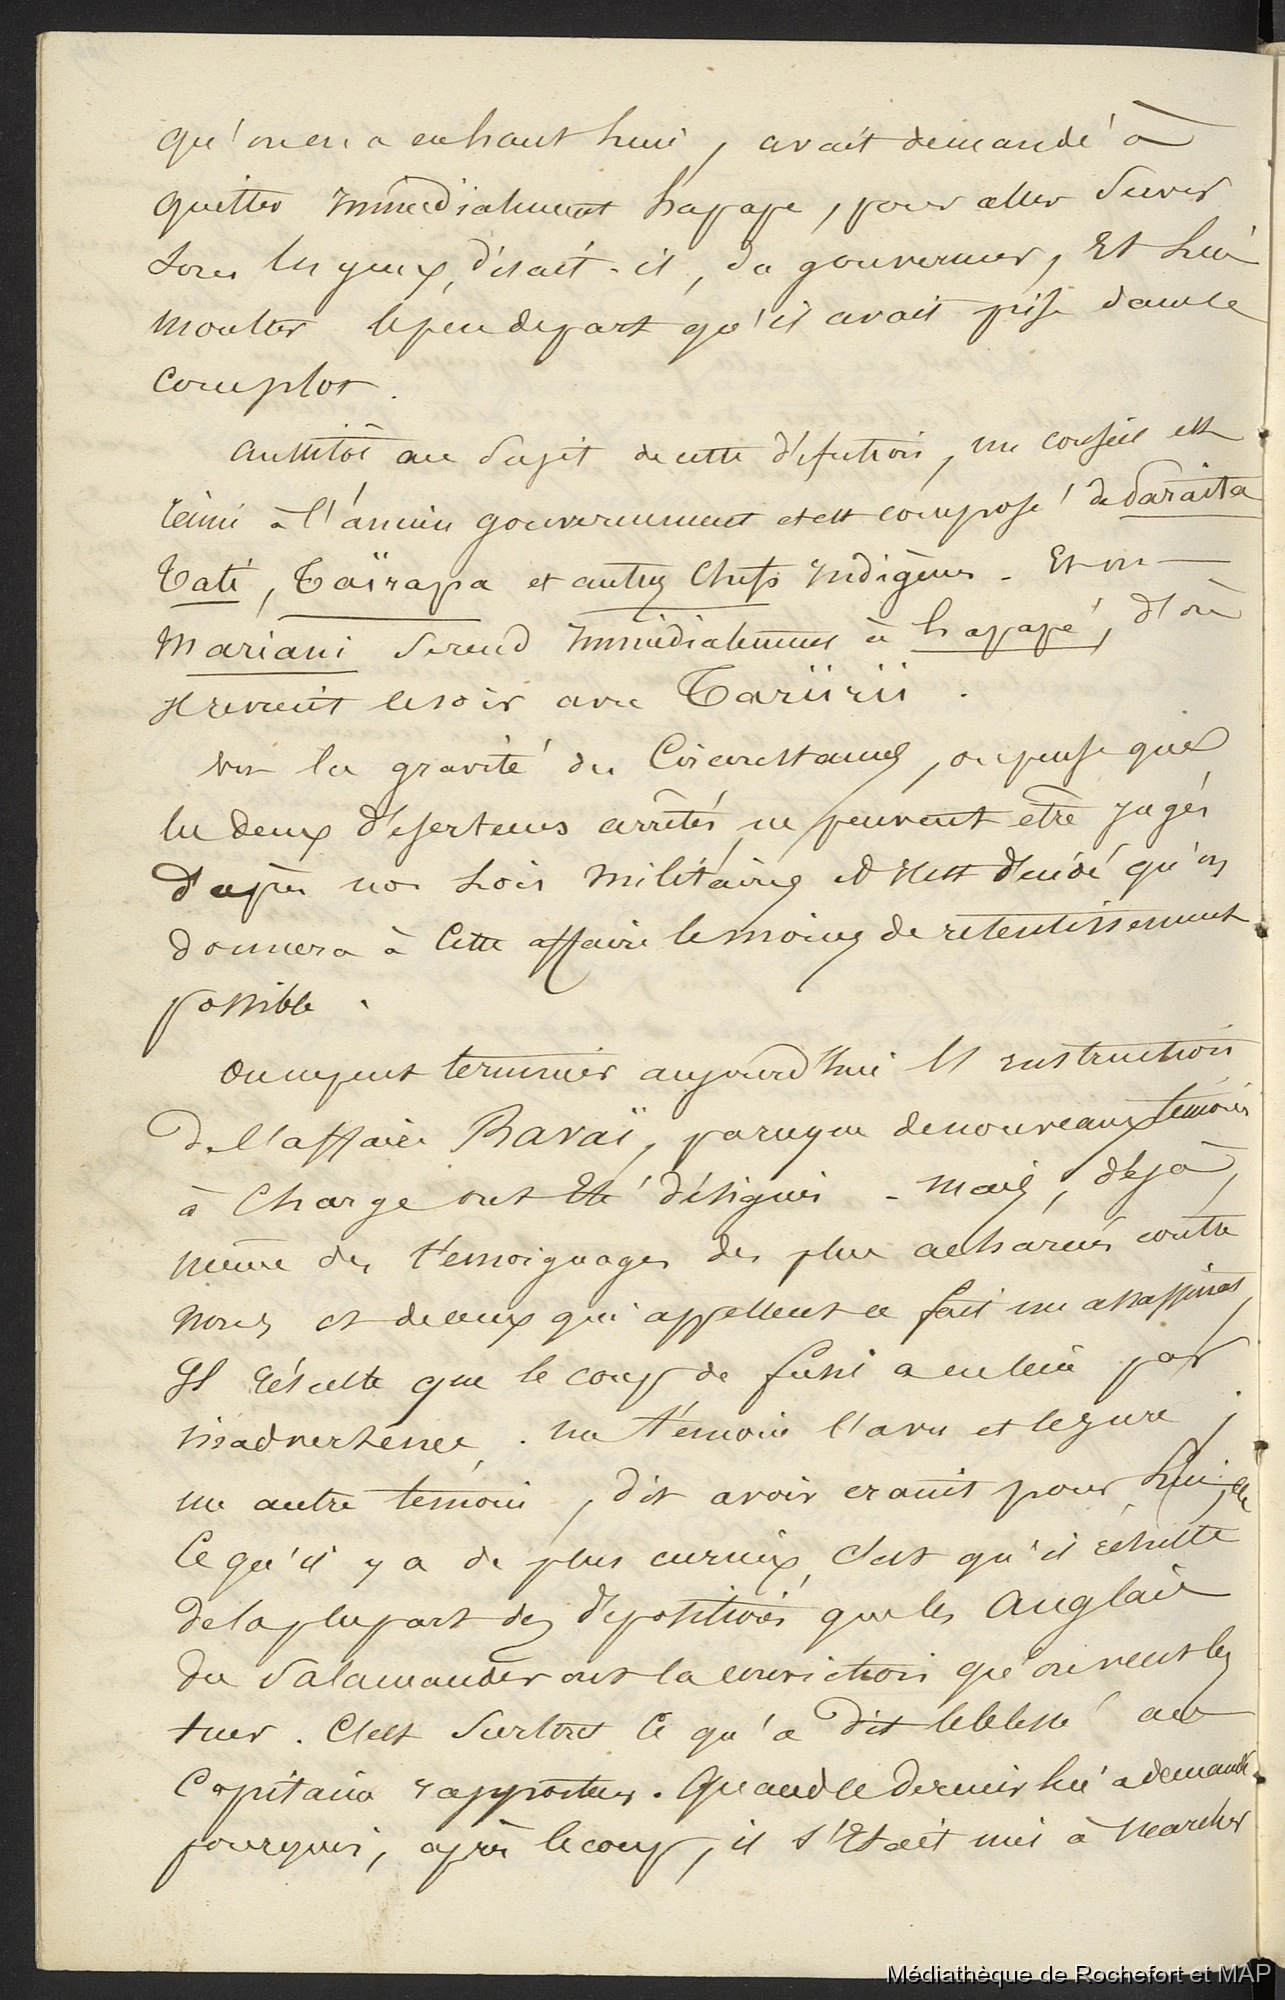 qu'on en a eu haut lui, avait demandé à
quitter immédiatement hapape, pour aller servir
sous les yeux, disait-il, du gouverneur, Et lui
montrer le peu de part qu'il avait prise dans le
complot.
aussitôt au sujet de cette défection, un conseil est
réuni à l'ancien gouvernement et est composé de Paraita
Tati, Taïrapa et autres Chefs indigènes. Et on
Mariani se rend immédiatement à hapapé, d'où
il revient le soir avec Tariirii.
vu la gravité des Circonstances, on pense que
les deux déserteurs arrêtés ne peuvent être jugés
d'après nos Lois Militaires et il est décidé qu'on
donnera à Cette affaire le moins de retentissement
possible.
On ne peut terminer aujourd'hui l'instruction
de l'affaire Ravaï, parce que de nouveaux témoins
à Charge ont été désignés - Mais, déjà,
même des témoignages des plus acharnés contre
nous et de ceux qui appellent ce fait un assassinat,
Il résulte que le coup de fusil a eu lieu par
inadvertence. un témoin l'a vu et le jure;
un autre témoin, dit avoir craint pour lui,
Ce qu'il y a de plus curieux, C'est qu'il résulte
de la plupart des dépositions que les Anglais
du Salamander ont la conviction qu'on veut les
tuer. C'est surtout Ce qu'a dit le blessé au
Capitaine rapporteur. Quand ce dernier lui a demandé
pourquoi, après le coup, il s'était mis à marcher
Médiathèque de Rochefort et MAP